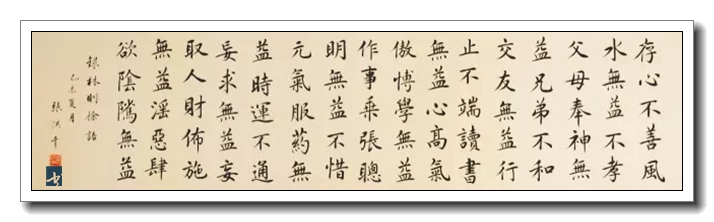 存心不善風
水無益不孝
父母奉神無
益兄弟不和
交友無益行
止不端讀書
無益心高氣
傲博學無益
作事乖張聰
明無益不惜
元氣服葯無
益時運不通
妄求無益妄
取人財佈施
無益淫惡肆
欲陰騭無益
録林則徐語
乙未夏月
張洪